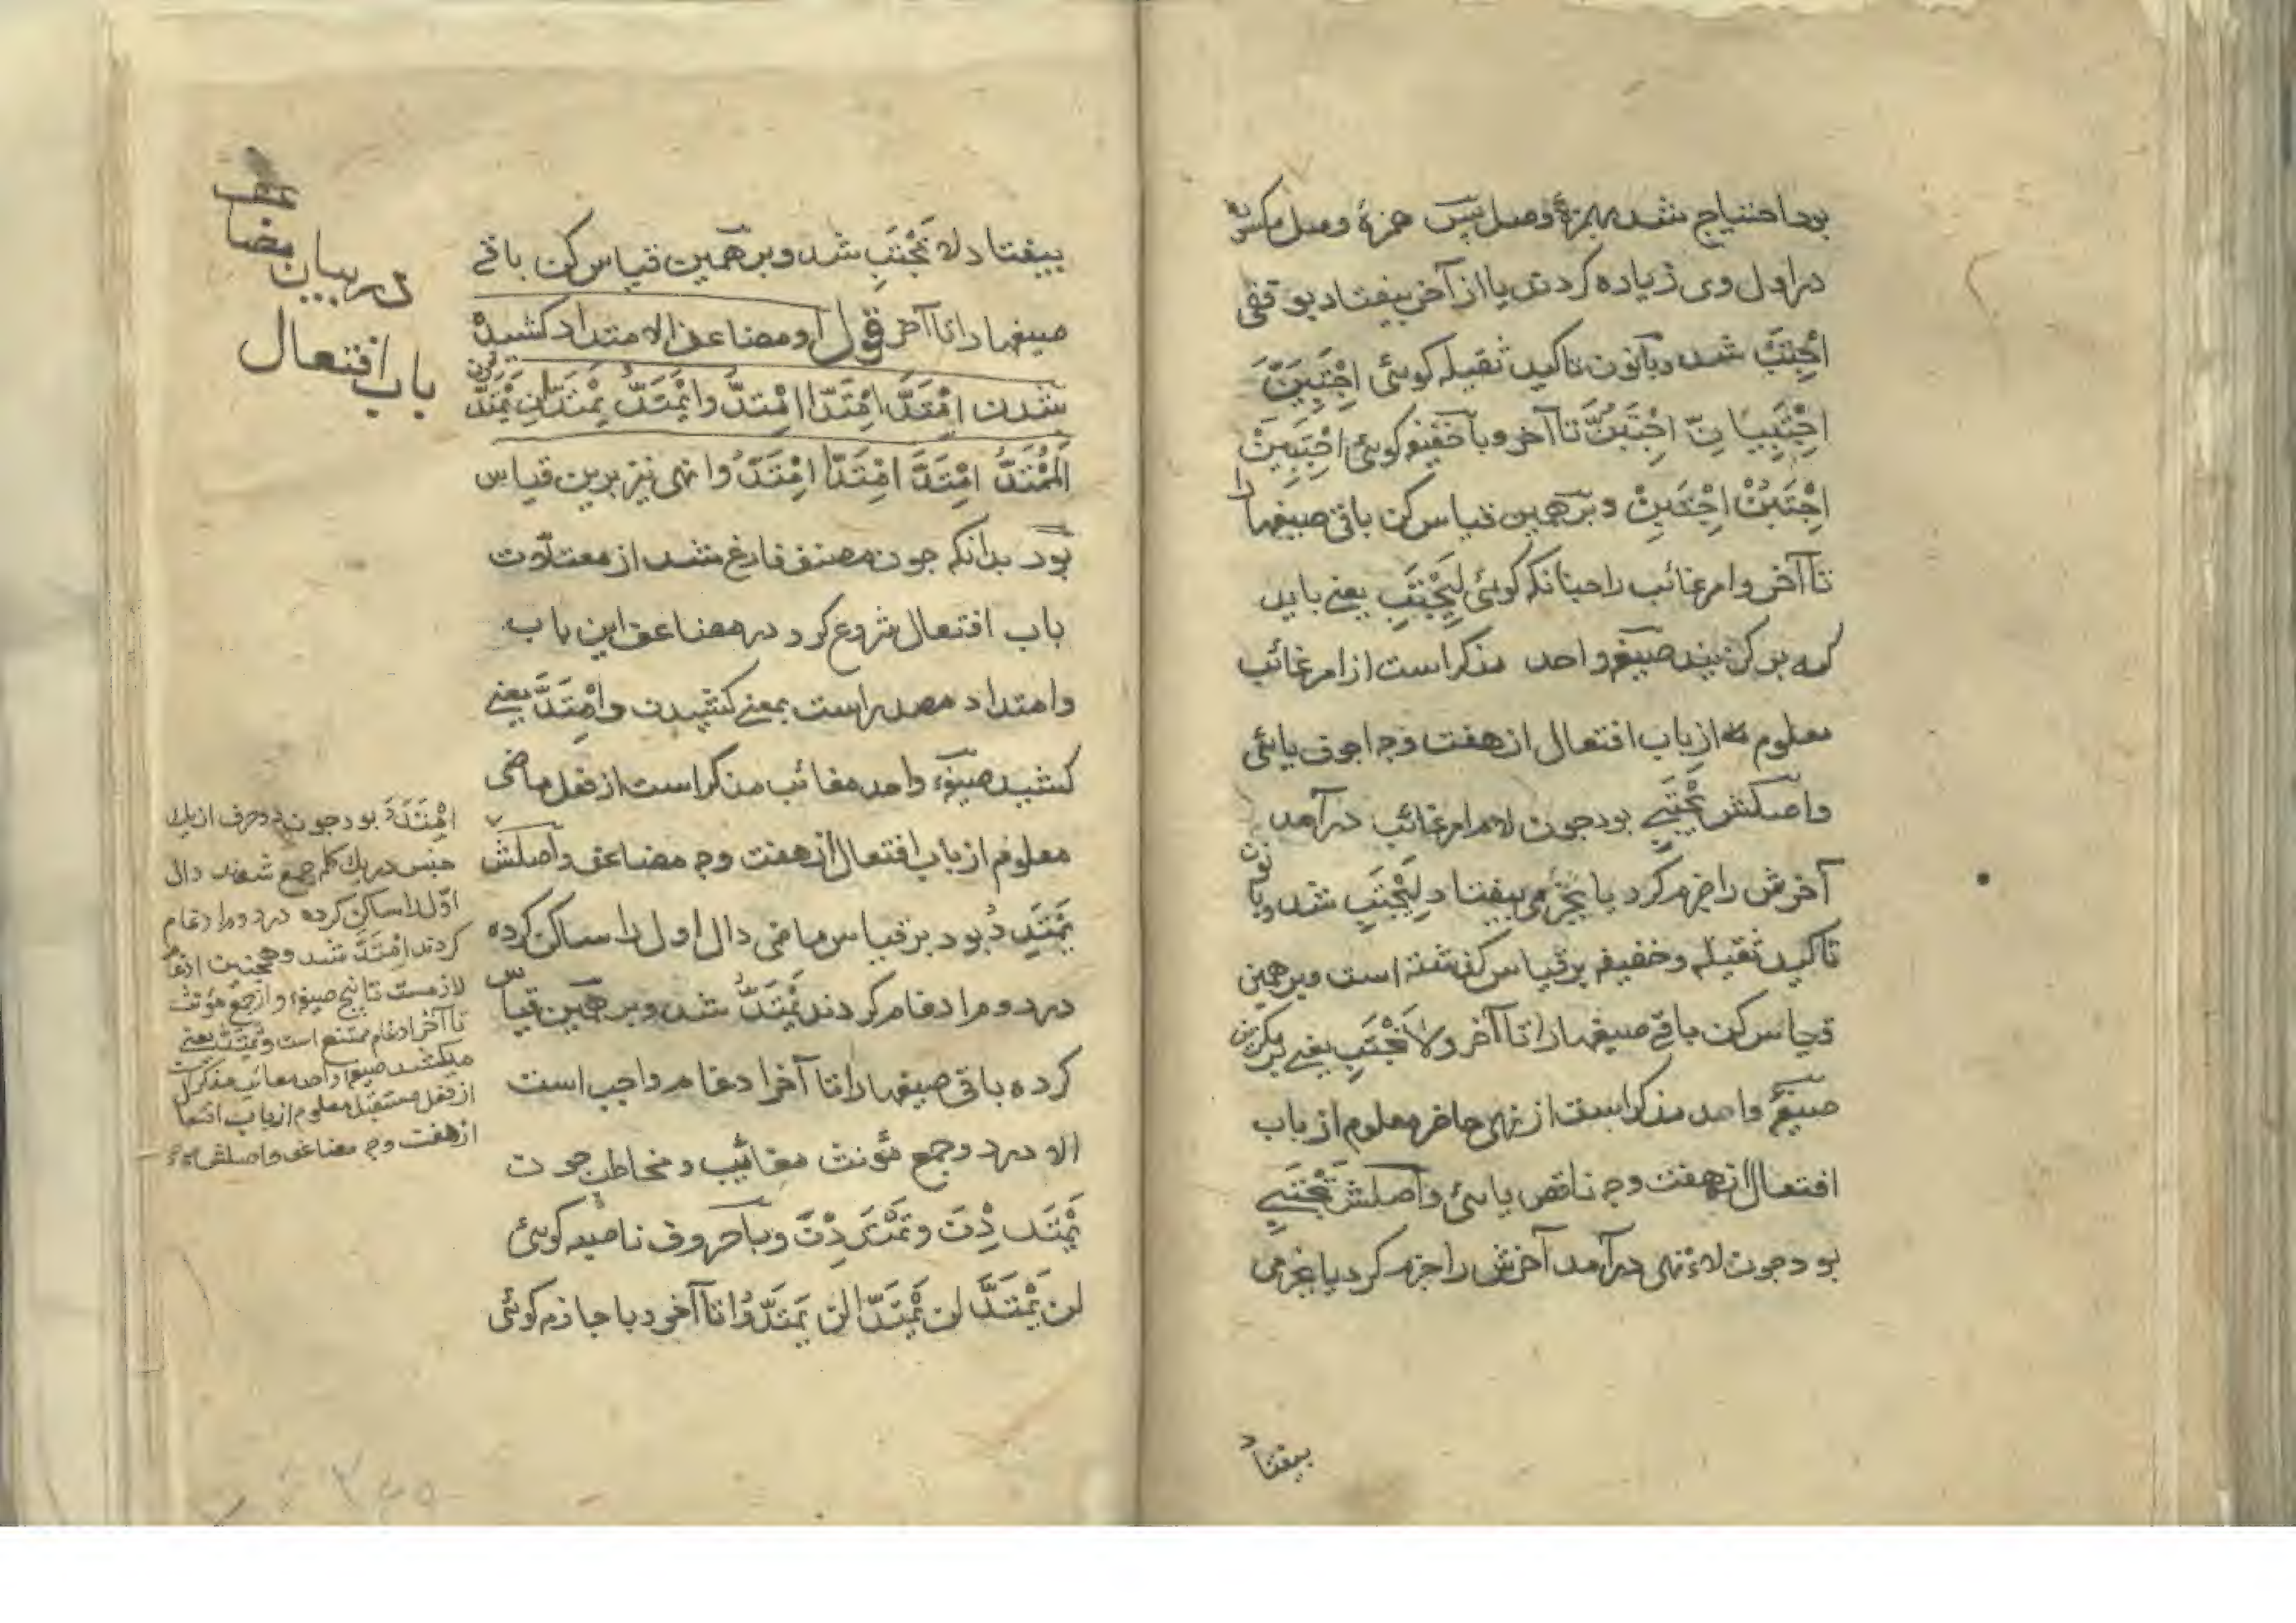 بود احتیاج شد بهمزۀ وصل پس همزۀ وصل مکسوره
در اول وی زیاده کردند یا از آخر بیفتاد بوقفی
اِجْتَبِ شد و بانون تاکید ثقیله کوئی اِجْتَبِیَنَّ
اِجْتَبِیَانِّ اِجْتَبُنَّ تا آخر و با خفیفه کوئی اِجْتَبِیَنْ
اِجْتَبُنْ اِجْتَبِنْ و برهمین قیاس کن باقی صیغها را
تا آخر و امر غائب را چنانکه کوئی لِیَجْتَبِ یعنے باید
که بر کزیند صیغه واحد مذکر است از امر غائب
معلوم از باب افتعال از هفت وجه اجوف یائی
و اصلش یَجْتَبِے بود جون لام امر غائب درآمد
آخرش را جزم کرد یا بجزمی بیفتاد لِیَجْتَبِ شد و با نون
تاکید ثقیله و خفیفه بر قیاس کذشته است و برهمین
قیاس کن باقے صیغها را تا آخر و لاَ تَجْتَبِ یعنے بر مکزین
صیغۀ واحد مذکر است از نهی حاضر معلوم از باب
افتعال از هفت وجه ناقص یائی و اصلش تَجْتَبِے
بود جون لاء نهی درآمد آخرش را جزم کرد یا بجزمی
بیفتاد
بیفتاد لا تَجْتَبِ شد و برهمین قیاس کن باقے
صیغها را تا آخر قوله و مضاعف الامتداد کشیدہ
شدن اِمْتَدَّ اِمْتَدَّا اِمْتَدُّوا یَمْتَدُّ یَمْتَدَّانِ یَمْتَدُّون
اَلْمُمْتَدُّ اِمْتَدَّ اِمْتَدَّا اِمْتَدُّوا نهی نیز برین قیاس
بود بدانکه جون مصنف فارغ شد از معتلات
باب افتعال شروع کرد در مضاعف این باب
و امتداد مصدر است بمعنے کشیدن و اِمْتَدَّ یعنے
کشید صیغۀ واحد مغائب مذکر است از فعل ماضی
معلوم از باب افتعال از هفت وجه مضاعف و اصلش
یَمْتَدِدُ بود بر قیاس ماضی دال اول را ساکن کرده
در دوم ادغام کردند یَمْتَدُّ شد و برهمین قیاس
کرده باقی صیغها را تا آخر ادغام واجب است
الا در دو جمع مؤنث مغائب و مخاطب جون
یَمْتَدِدْنَ و تَمْتَدِدْنَ و با حروف ناصبه کوئی
لن یَمْتَدَّ لن یَمْتَدَّا لن یَمْتَدُّوا تا آخر و با جازم کوئی
در بیان مضاعف
باب افتعال
اِمْتَدَدَ بود جون دو حرف از یك
جنس در یك کلمه جمع شدند دال
اوّل را ساکن کرده در دوم ادغام
کردند اِمْتَدَّ شد و همجنین ادغام
لازمست تا پنج صیغه و از جمع مؤنث
تا آخر ادغام ممتنع است و یَمْتَدُّ یعنے
میکشد صیغه واحد مغائب مذکر است
از فعل مستقبل معلوم از باب افتعال
از هفت وجه مضاعف و اصلش